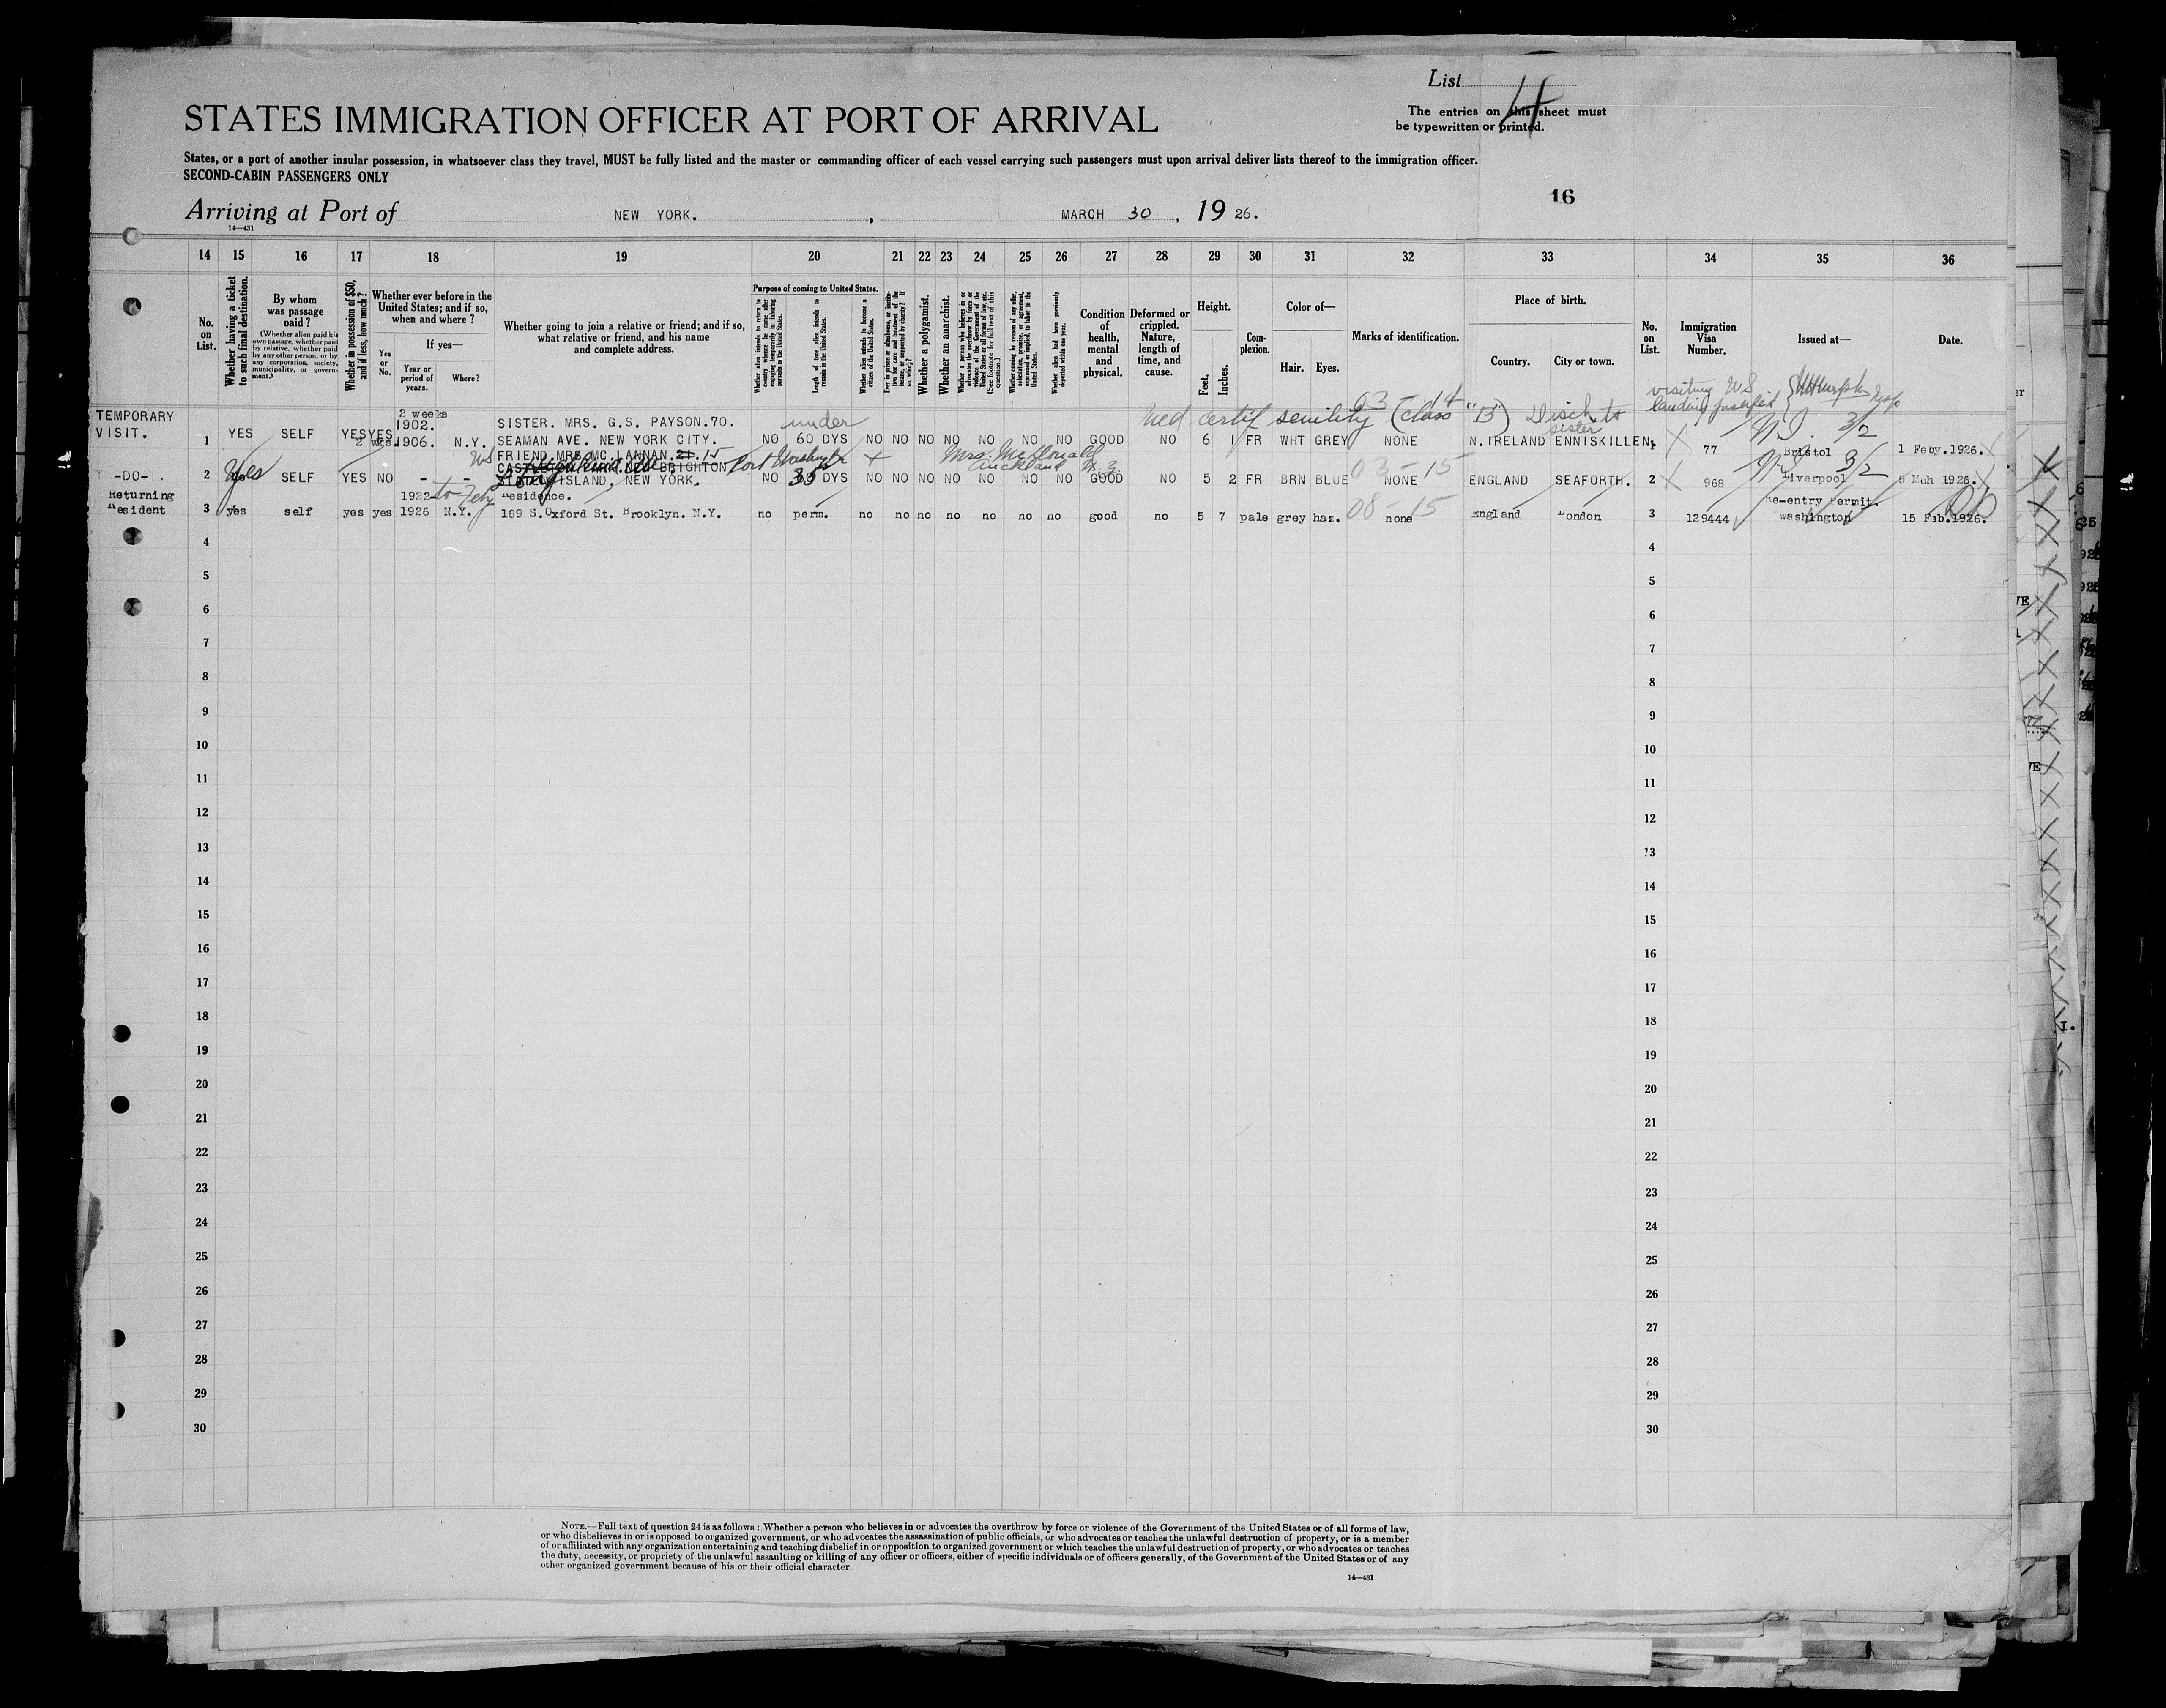 List 4
STATES IMMIGRATION OFFICER AT PORT OF ARRIVAL
The entries on this sheet must
be typewritten or printed.
States, or a port of another insular possession, in whatsoever class they travel, MUST be fully listed and the master or commanding officer of each vessel carrying such passengers must upon arrival deliver lists thereof to the immigration officer.
SECOND-CABIN PASSENGERS ONLY
16
Arriving at Port of NEW YORK. , MARCH 30 , 19 26.
14—431
14 15 16 17 18 19 20 21 22 23 24 25 26 27 28 29 30 31 32 33 34 35 36
No. on List.
Whether having a ticket to such final destination.
By whom was passage paid?
(Whether alien paid his own passage, whether paid by relative, whether paid by any other person, or by any corporation, society, municipality, or government.)
Whether in possession of $50, and if less, how much?
Whether ever before in the United States; and if so, when and where?
Yes or No.
If yes—
Year or period of years.
Where?
Whether going to join a relative or friend; and if so, what relative or friend, and his name and complete address.
Purpose of coming to United States.
Whether alien intends to return to country whence he came after engaging temporarily in laboring pursuits in the United States.
Length of time alien intends to remain in the United States.
Whether alien intends to become a citizen of the United States.
Ever in prison or almshouse, or institution for care and treatment of the insane, or supported by charity? If so, which?
Whether a polygamist.
Whether an anarchist.
Whether a person who believes in or advocates the overthrow by force or violence of the Government of the United States or all forms of law, etc. (See footnote for full text of this question.)
Whether coming by reason of any offer, solicitation, promise, or agreement, expressed or implied, to labor in the United States.
Whether alien had been previously deported within one year.
Condition of health, mental and physical.
Deformed or crippled. Nature, length of time, and cause.
Height.
Feet. Inches.
Complexion.
Color of—
Hair. Eyes.
Marks of identification.
Place of birth.
Country. City or town.
No. on List.
Immigration Visa Number.
Issued at—
Date.
visiting
landing
03 - 14
Med certif senility (class "B") Disch to sister
TEMPORARY VISIT.
1 YES SELF YES 2 wks. YES 2 weeks 1902. 1906. N.Y. SISTER. MRS. G.S. PAYSON.70. SEAMAN AVE. NEW YORK CITY. NO under 60 DYS NO NO NO NO NO NO NO GOOD NO 6 1 FR WHT GREY NONE N.IRELAND ENNISKILLEN. 1 77 N.I. 3/2 Bristol 1 Feby.1926.
-DO-.
2 Yes SELF YES NO - - FRIEND.MRS.MC.LANNAN.21.15 BRIGHTON ISLAND, NEW YORK. Port Washington NO 35 DYS NO NO NO NO NO NO NO GOOD NO 5 2 FR BRN BLUE NONE ENGLAND SEAFORTH. 2 968 3/2 Liverpool 5 Mch 1926.
Mrs. McDonald Auckland N.Z.
03-15
Returning Resident
3 yes self yes yes 1922 to Feby 1926 N.Y. Residence. 189 S.Oxford St. Brooklyn. N.Y. no perm. no no no no no no no good no 5 7 pale grey haz. none England London 3 129444 Re-entry Permit. washington 15 Feb.1926.
08-15
4 4
5 5
6 6
7 7
8 8
9 9
10 10
11 11
12 12
13 13
14 14
15 15
16 16
17 17
18 18
19 19
20 20
21 21
22 22
23 23
24 24
25 25
26 26
27 27
28 28
29 29
30 30
NOTE.—Full text of question 24 is as follows: Whether a person who believes in or advocates the overthrow by force or violence of the Government of the United States or of all forms of law,
or who disbelieves in or is opposed to organized government, or who advocates the assassination of public officials, or who advocates or teaches the unlawful destruction of property, or is a member
of or affiliated with any organization entertaining and teaching disbelief in or opposition to organized government or which teaches the unlawful destruction of property, or who advocates or teaches
the duty, necessity, or propriety of the unlawful assaulting or killing of any officer or officers, either of specific individuals or of officers generally, of the Government of the United States or of any
other organized government because of his or their official character.
14—431